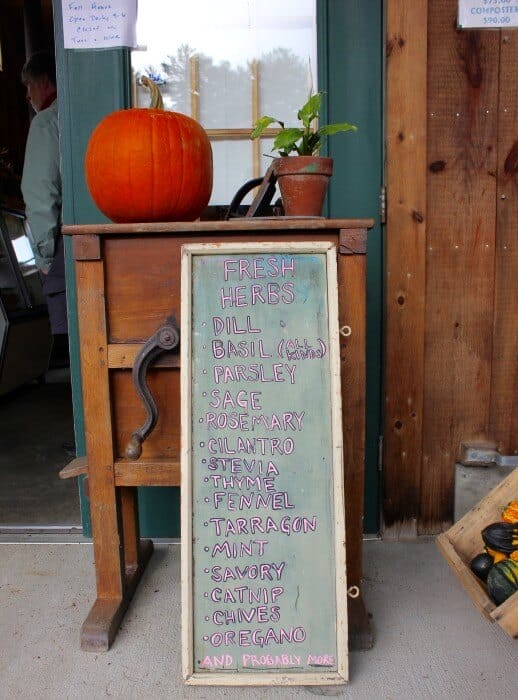 Fall Hours
Open Daily 9-6
Closed on
Tues & Wed
$75.00
COMPOSTER
$90.00
FRESH
HERBS
· DILL
· BASIL (ALL KINDS)
· PARSLEY
· SAGE
· ROSEMARY
· CILANTRO
· STEVIA
· THYME
· FENNEL
· TARRAGON
· MINT
· SAVORY
· CATNIP
· CHIVES
· OREGANO
AND PROBABLY MORE